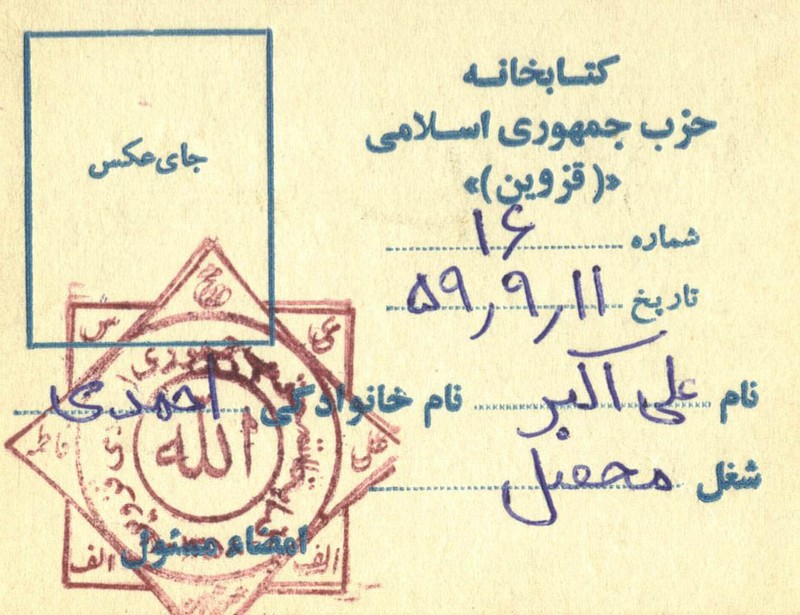 کتابخانه
حزب جمهوری اسلامی
«(قزوین)»
شماره ۱۶
تاریخ ۵۹٫۹٫۱۱
جای عکس
نام علی اکبر نام خانوادگی احمدی
شغل محصل
امضاء مسئول
الله
علی
فاطمه
الف
الف